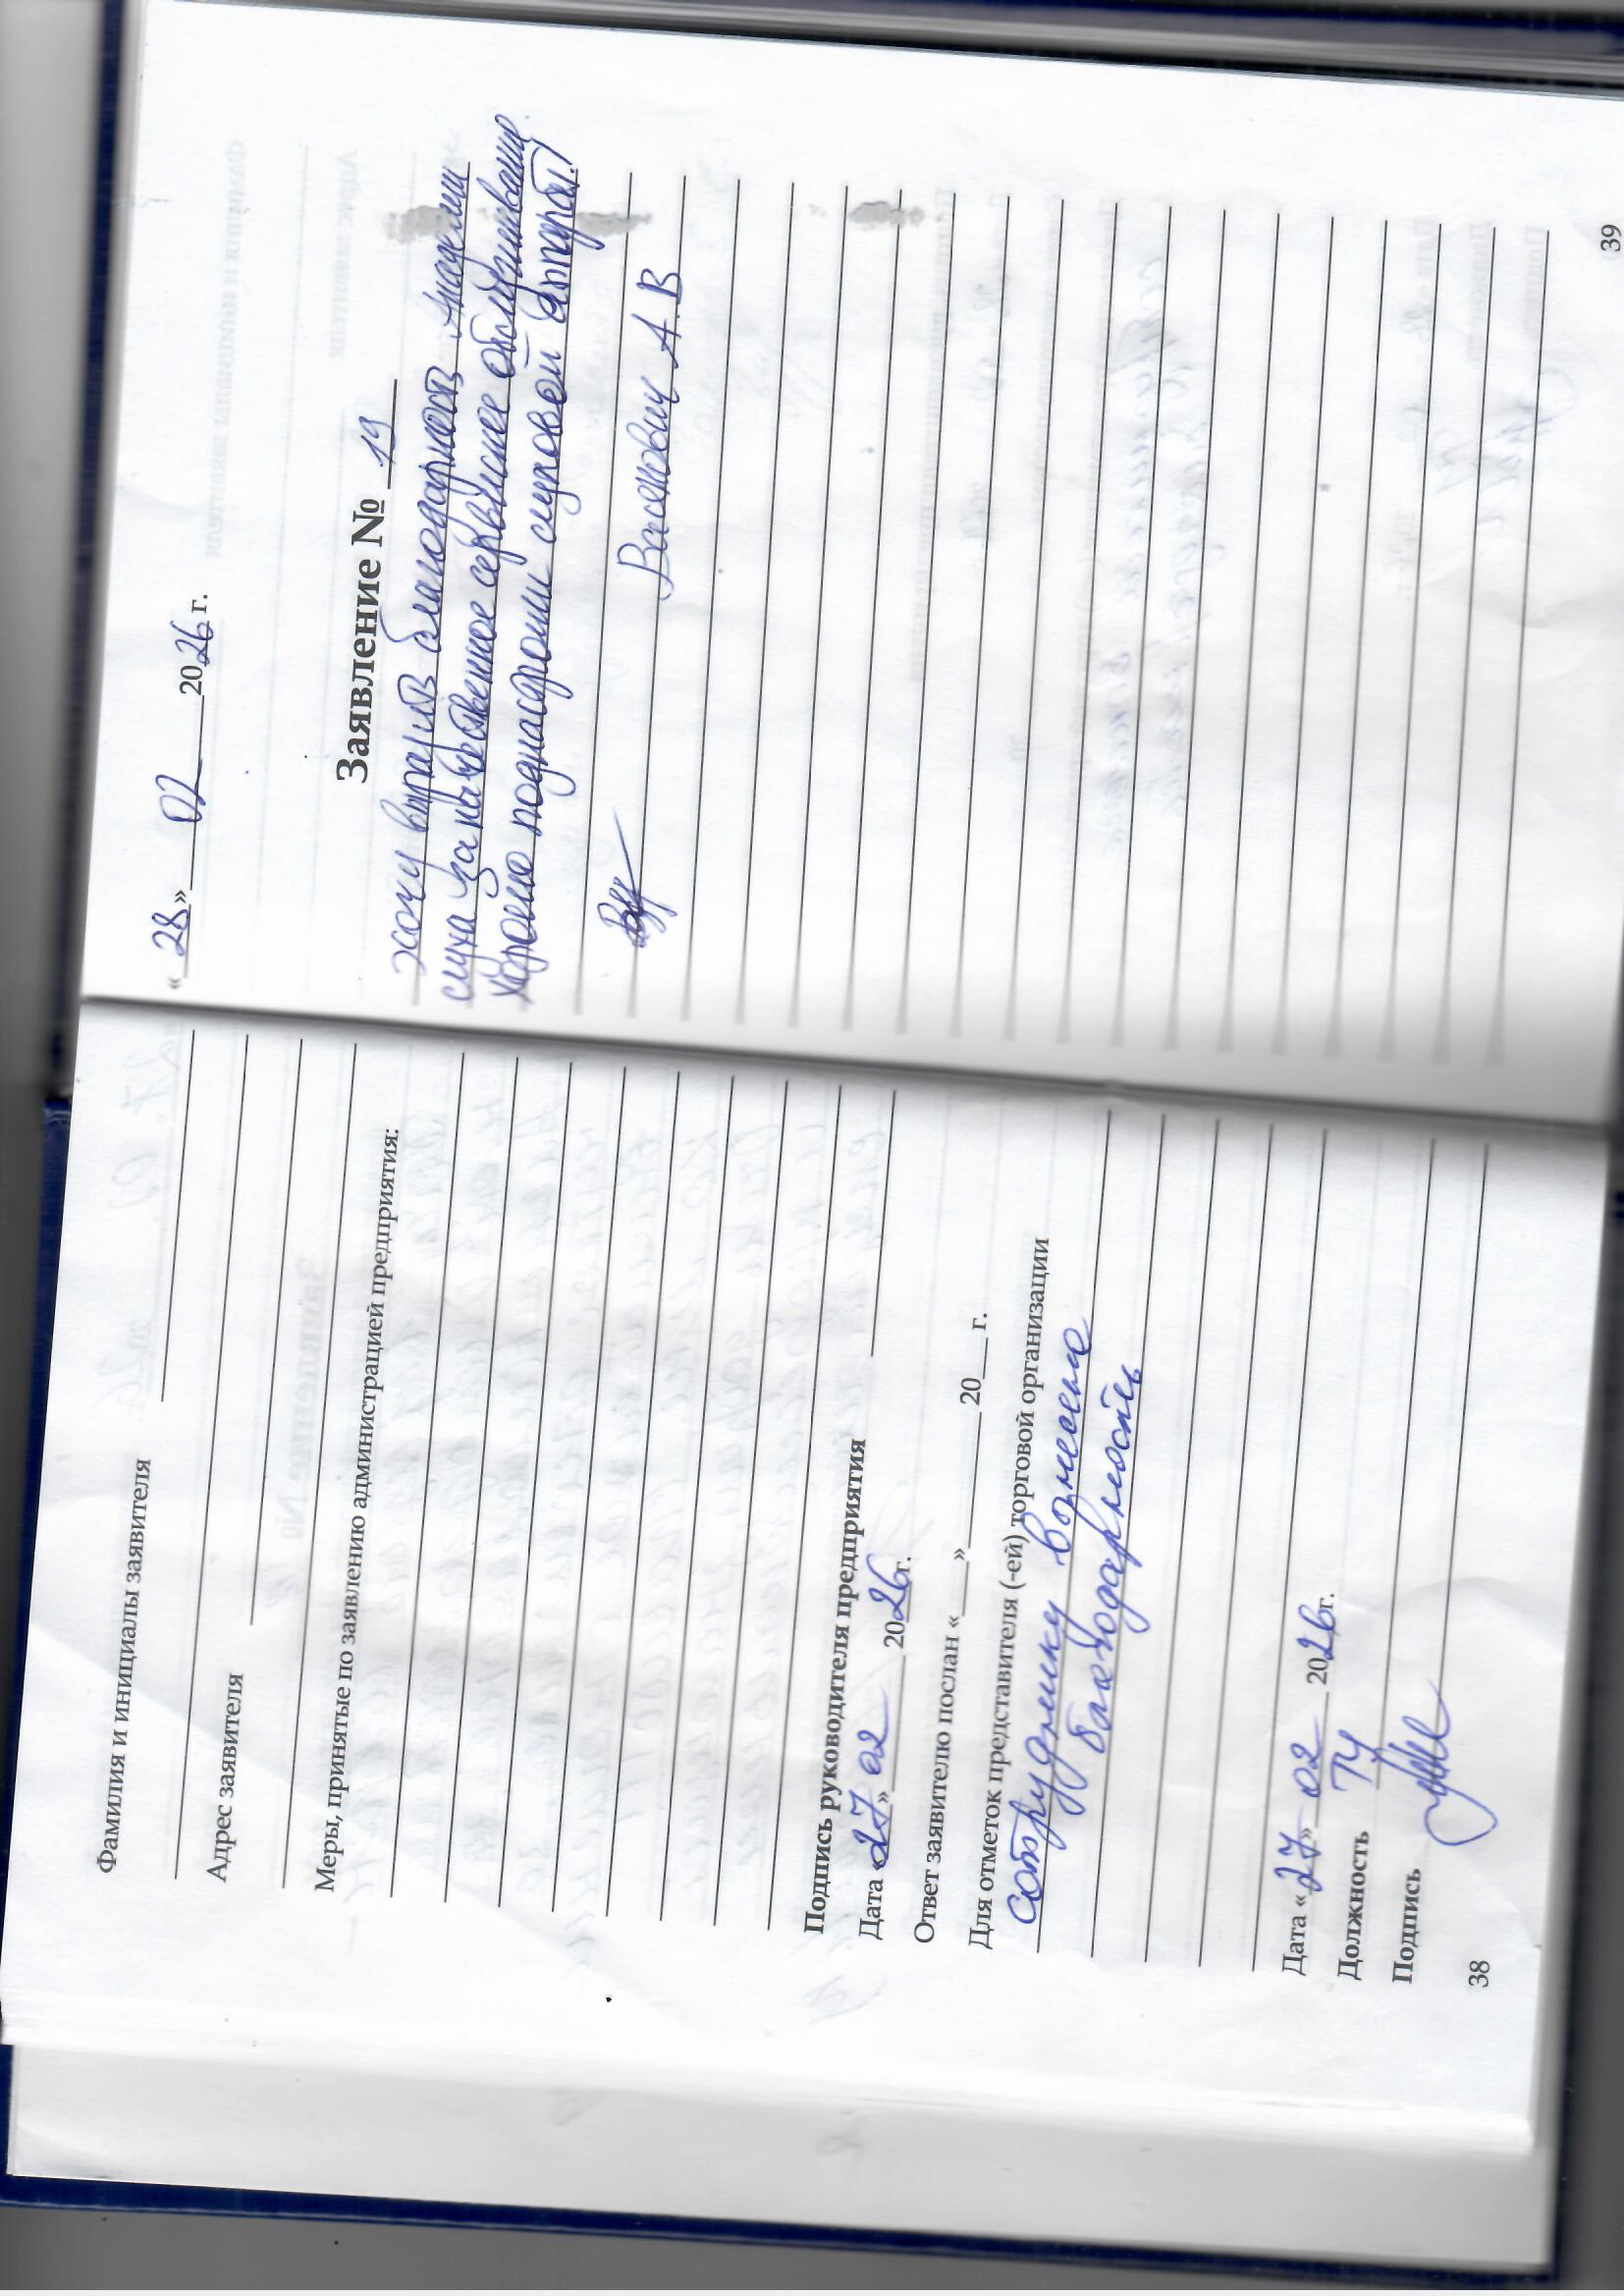 Фамилия и инициалы заявителя
Адрес заявителя
Меры, принятые по заявлению администрацией предприятия:
Подпись руководителя предприятия
Дата «27» 02 2026г.
Ответ заявителю послан « » 20 г.
Для отметок представителя (-ей) торговой организации
сотруднику вынесена
благодарность
Дата «27» 02 2026г.
Должность ТУ
Подпись
38
«28» 02 2026 г.
Заявление № 19
Хочу выразить благодарность Академии
слуха за качественное сервисное обслуживание.
Хорошо поднастроили слуховой аппарат!
Васькович А.В
39